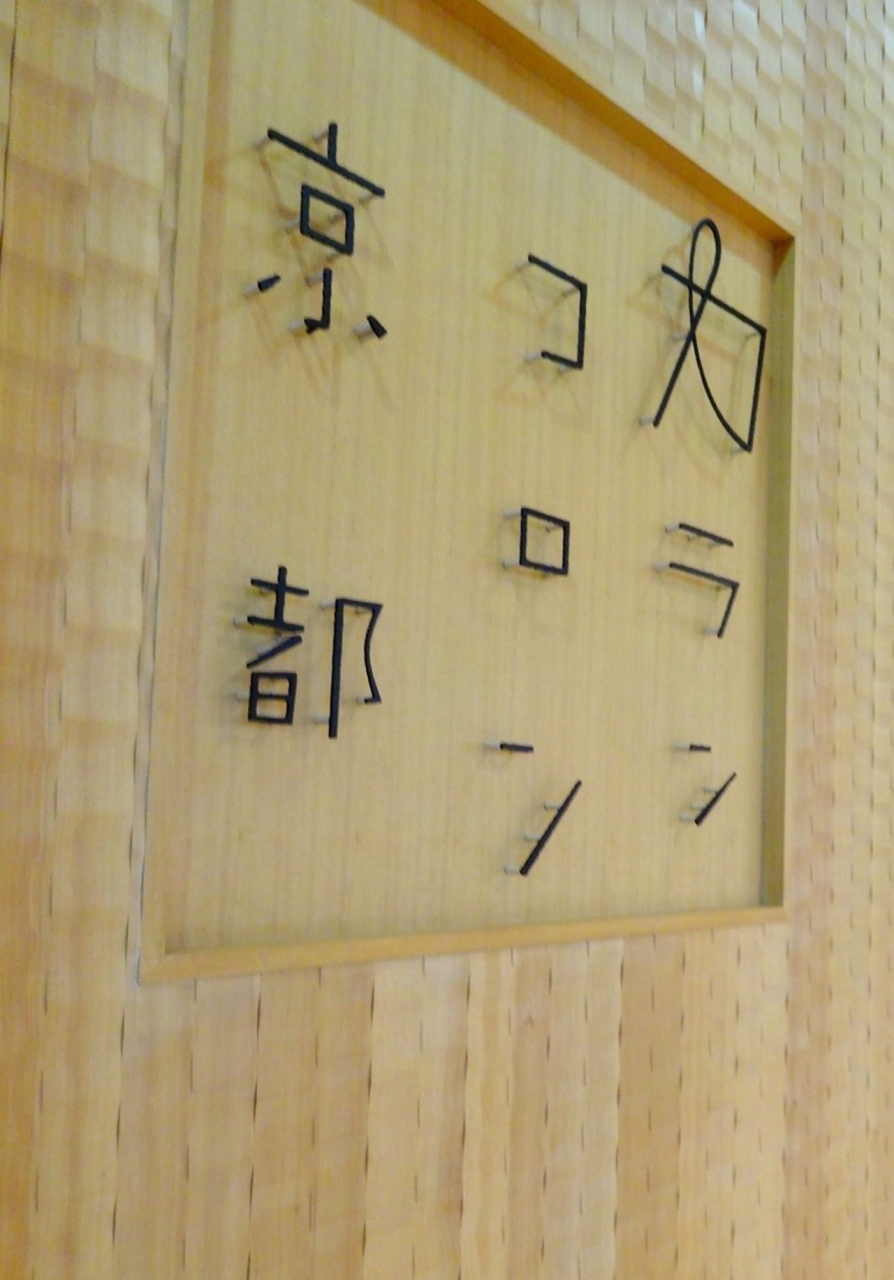 カラン
コロン
京都